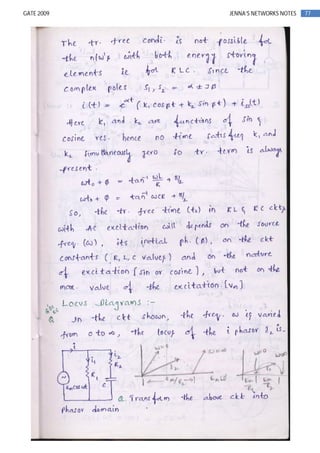 GATE 2009
JENNA'S NETWORKS NOTES
77
The tr. free condi. is not possible for
the n/w's with both energy storing
elements ie for RLC. Since the
complex poles : S₁, S₂ = α ± jβ
i(t) = e^αt (K₁ cos βt + K₂ sin βt) + i_ss(t).
Here K₁ and K₂ are functions of sin &
cosine res. hence no time satisfies K₁ and
K₂ simultaneously zero so tr. term is always
present.
ωt₀ + φ = tan⁻¹ ωL/R + π/2
ωt₀ + φ = tan⁻¹ ωCR + π/2
So, the tr. free time (t₀) in RL & RC ckts
with AC excitation will depends on the source
freq (ω), its initial ph. (φ), on the ckt
constants (R, L, C values) and on the nature
of excitation [sin or cosine], but not on the
max value of the excitation (Vm).
Locus Diagrams :-
Q. In the ckt shown, the freq. ω is varied
from 0 to ∞, the locus of the i phasor I₂ is.
i
i₁
i₂
R₁
R₂
C
Em cos ωt
ω=0
ω=∞
Em/R₂
ω=0
ω=∞
Em/R₁
Em/R₂
Q. Transform the above ckt into
Phasor domain